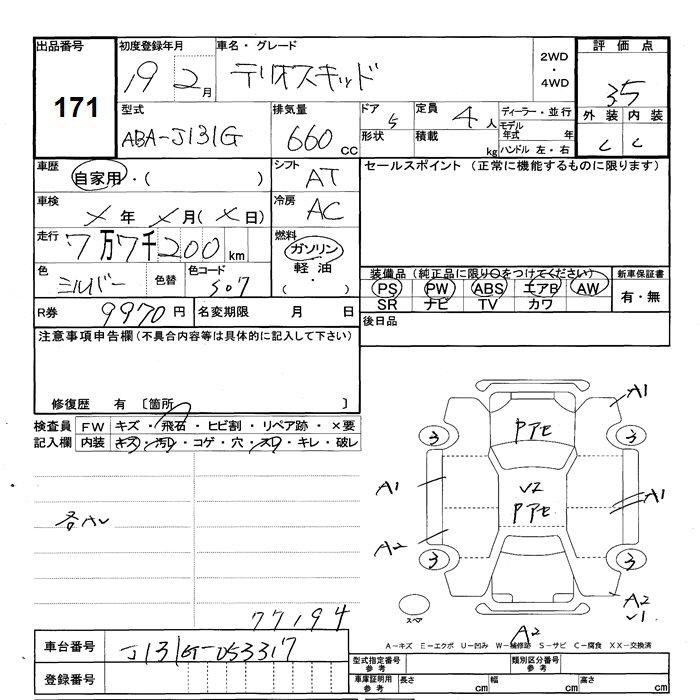 出品番号 初度登録年月 車名・グレード 2WD・4WD 評価点
171 19 2月 テリオスキッド 3.5
型式 排気量 ドア 5 定員 4人 ディーラー・並行 外装 内装
ABA-J131G 660cc 形状 積載 kg モデル年式 年 C C
ハンドル 左・右
車歴 自家用・( ) シフト AT セールスポイント (正常に機能するものに限ります)
車検 メ年メ月(メ日) 冷房 AC
走行 7万7千200km 燃料 ガソリン・軽油・( )
色 シルバー 色替 色コード S07 装備品 (純正品に限り○をつけてください) 新車保証書
PS PW ABS エアB AW 有・無
SR ナビ TV カワ
R券 9970円 名変期限 月 日 後日品
注意事項申告欄 (不具合内容等は具体的に記入して下さい)
修復歴 有 〔箇所 〕
検査員 FW キズ・飛石・ヒビ割・リペア跡・×要
記入欄 内装 キズ・汚レ・コゲ・穴・スレ・キレ・破レ
A1
PアE
3 3
A1 V2 A1
PアE
各AV
A2
3 3
A2
V1
スペア
77194
A2
A－キズ E－エクボ U－凹み W－補修跡 S－サビ C－腐食 XX－交換済
車台番号 J131G-053317 型式指定番号 参考 類別区分番号 参考
登録番号 車庫証明用 参考 長さ cm 幅 cm 高さ cm